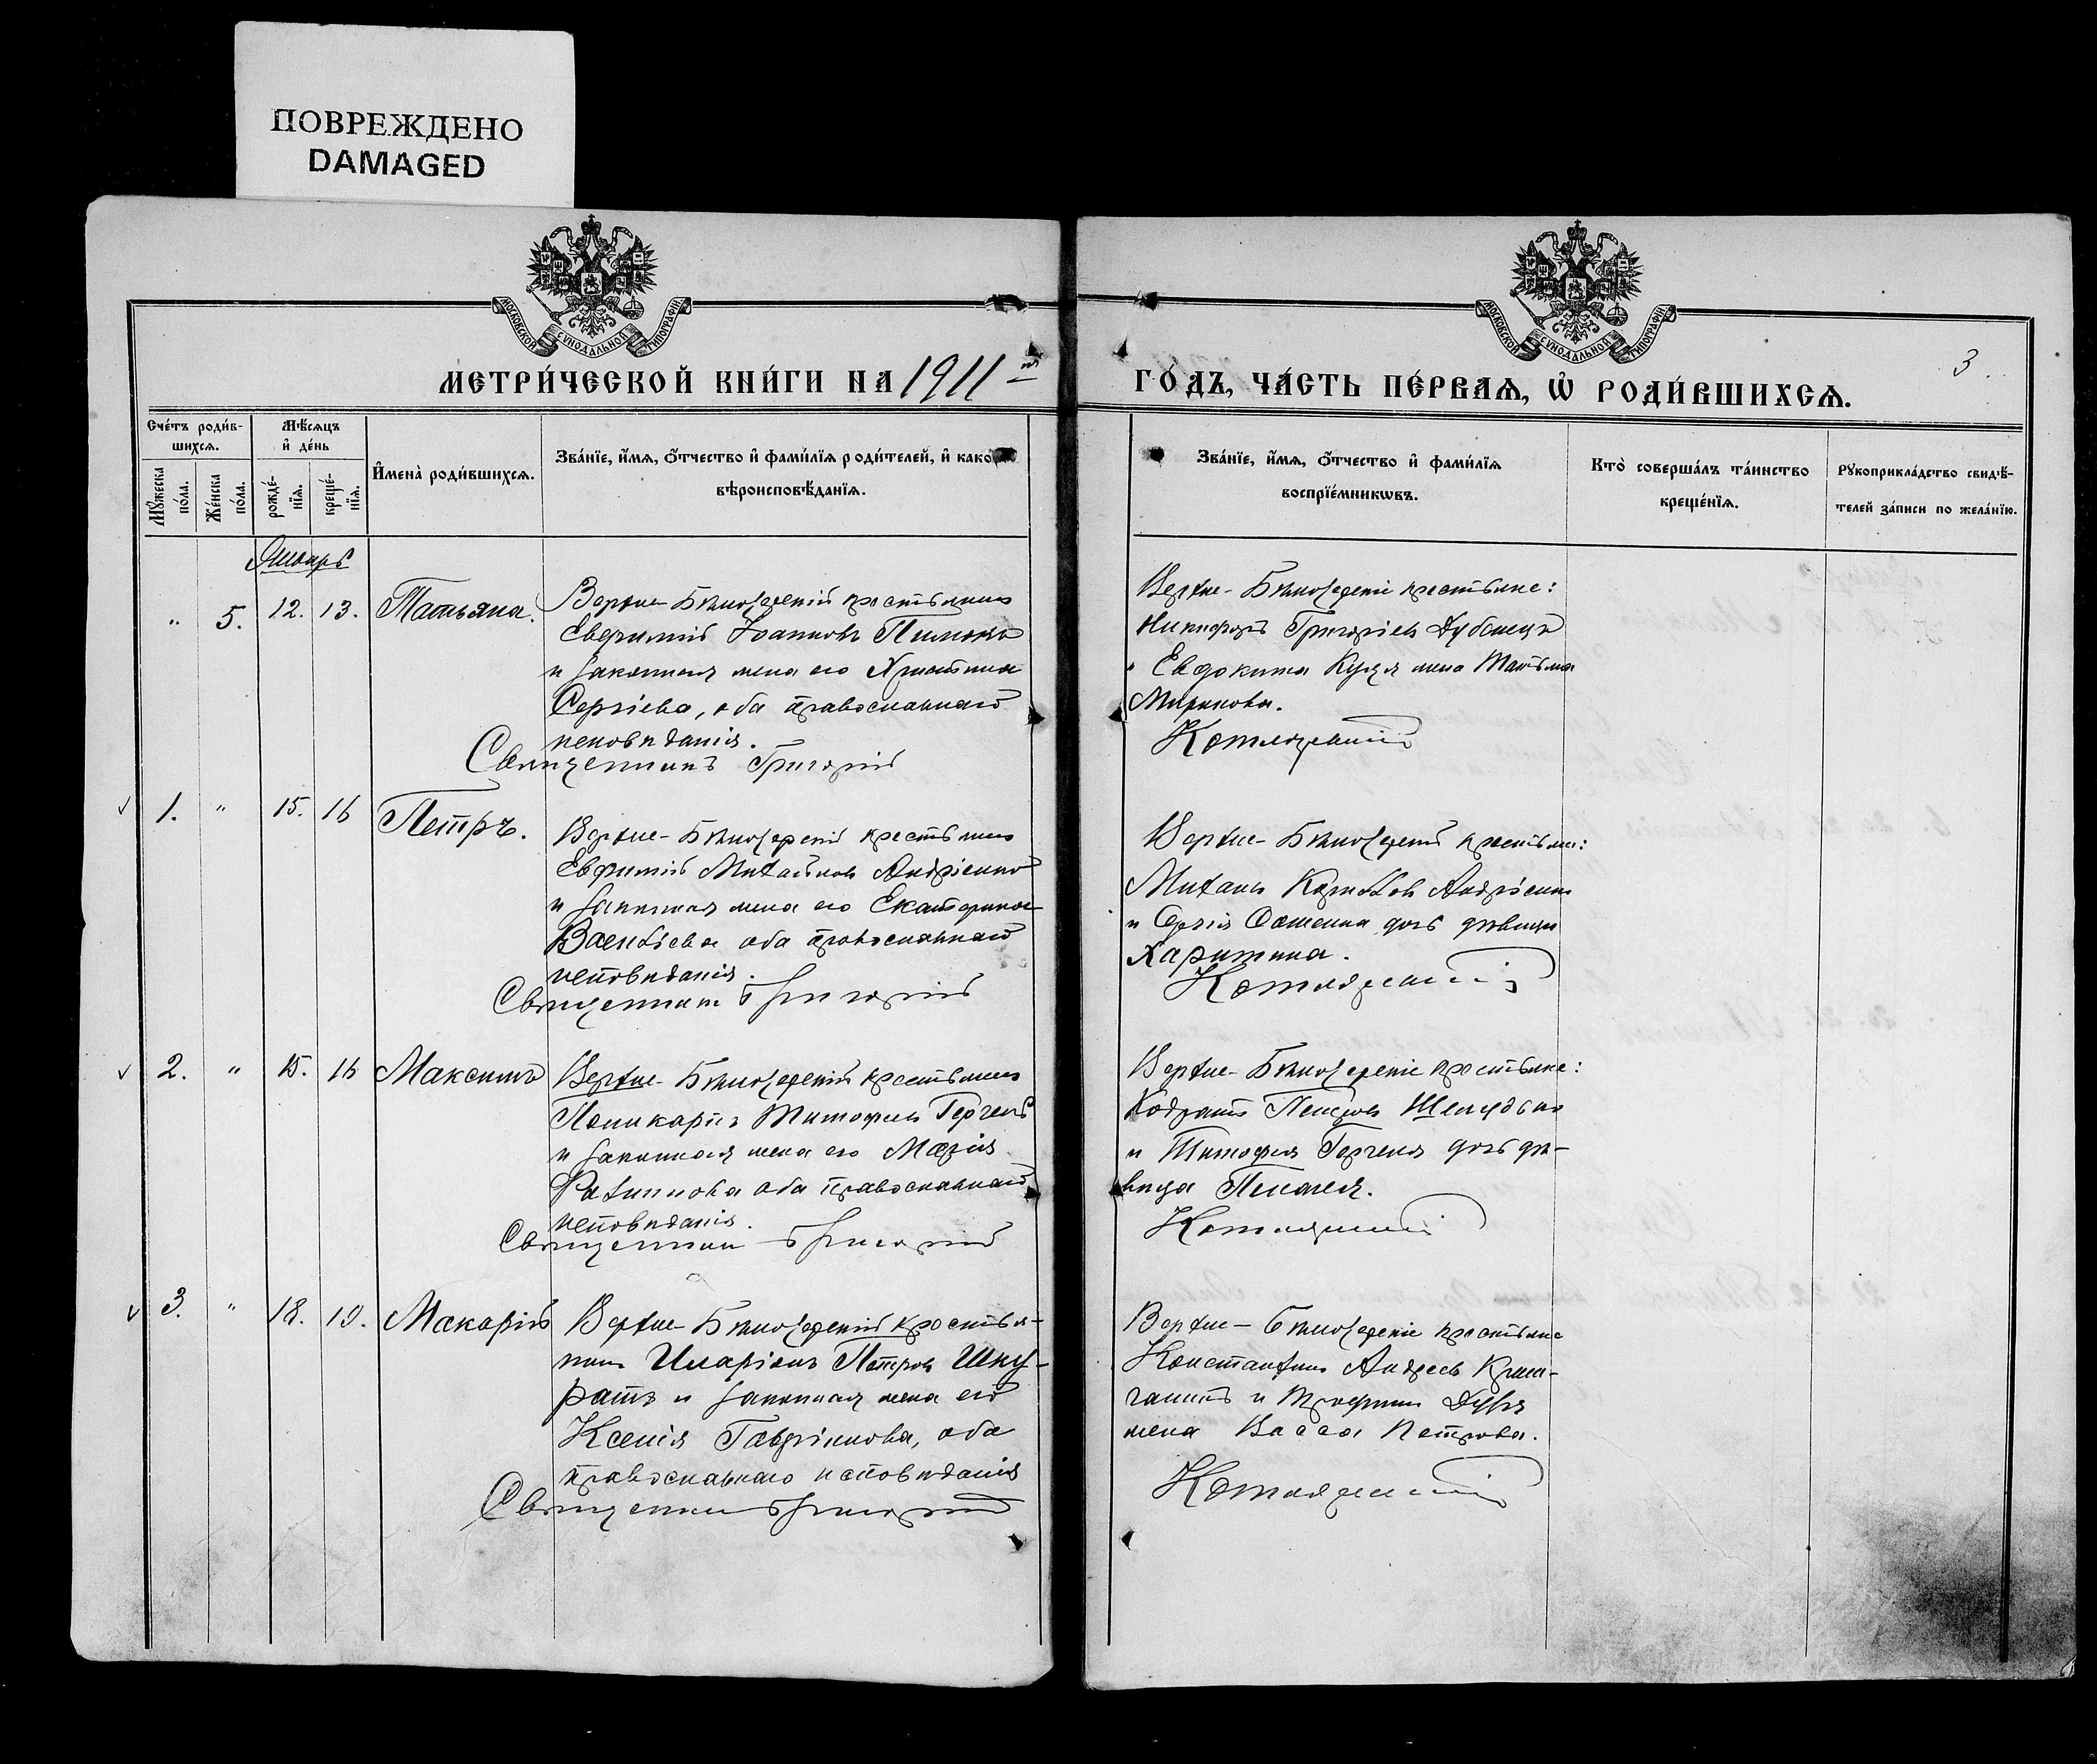 ПОВРЕЖДЕНО
DAMAGED
МОСКОВСКОЙ СѴНОДАЛЬНОЙ ТИПОГРАФІИ
МОСКОВСКОЙ СѴНОДАЛЬНОЙ ТИПОГРАФІИ
3
МЕТРИ́ЧЕСКОЙ КНИ́ГИ НА 1911 й
ГО́ДЪ, ЧА́СТЬ ПЕ́РВАѦ, Ѡ҆ РОДИ́ВШИХСѦ.
Сче́тъ роди́в-
шихсѧ.
Мѣ́сѧцъ
и҆ де́нь
Мꙋ́жеска по́ла.
Же́нска по́ла.
рожде́-
нїѧ.
креще́-
нїѧ.
И҆мена̀ роди́вшихсѧ.
Зва́нїе, и҆́мѧ, ѻ҆́тчество и҆ фамѝлїѧ роди́телей, и҆ како
вѣроисповѣ́данїѧ.
Зва́нїе, и҆́мѧ, ѻ҆́тчество и҆ фамѝлїѧ
воспрїе́мникѡвъ.
Кто̀ соверша́лъ та́инство
креще́нїѧ.
Рꙋкоприкла́дство свидѣ́-
телей за́писи по жела́нїю.
Январь
" 5. 12. 13. Татьяна.
Верхне-Бѣлозерскій крестьянинъ
Евфимій Іоанновъ
и законная жена его Христина
Сергіева, оба православнаго
исповѣданія.
Священникъ Григорій
Верхне-Бѣлозерскіе крестьяне:
Никифоръ Григорьевъ Дубинецъ
и Евдокима жена Татьяна
Миронова.
Котляревскій
1. " 15. 16 Петръ.
Верхне-Бѣлозерскій крестьянинъ
Евфимій Михайловъ Андріенко
и законная жена его Екатерина
Васильева оба православнаго
исповѣданія.
Священникъ Григорій
Верхне-Бѣлозерскіе крестьяне:
Михаилъ Андріенко
и Сергія дочь дѣвица
Харитина.
Котляревскій
2. " 15. 16 Максимъ
Верхне-Бѣлозерскій крестьянинъ
Поликарпъ Тимофеевъ
и законная жена его Марія
Филиппова оба православнаго
исповѣданія.
Священникъ Григорій
Верхне-Бѣлозерскіе крестьяне:
Кодратъ Петровъ
и Тимофея дочь дѣ-
вица Пелагея.
Котляревскій
3. " 18. 19. Макарій
Верхне-Бѣлозерскій крестья-
нинъ Иларіонъ Петровъ Шку-
ратъ и законная жена его
Ксенія Гавріилова, оба
православнаго исповѣданія
Священникъ Григорій
Верхне-Бѣлозерскіе крестьяне
Константинъ Андреевъ
и Трофима
жена Васса Петрова.
Котляревскій